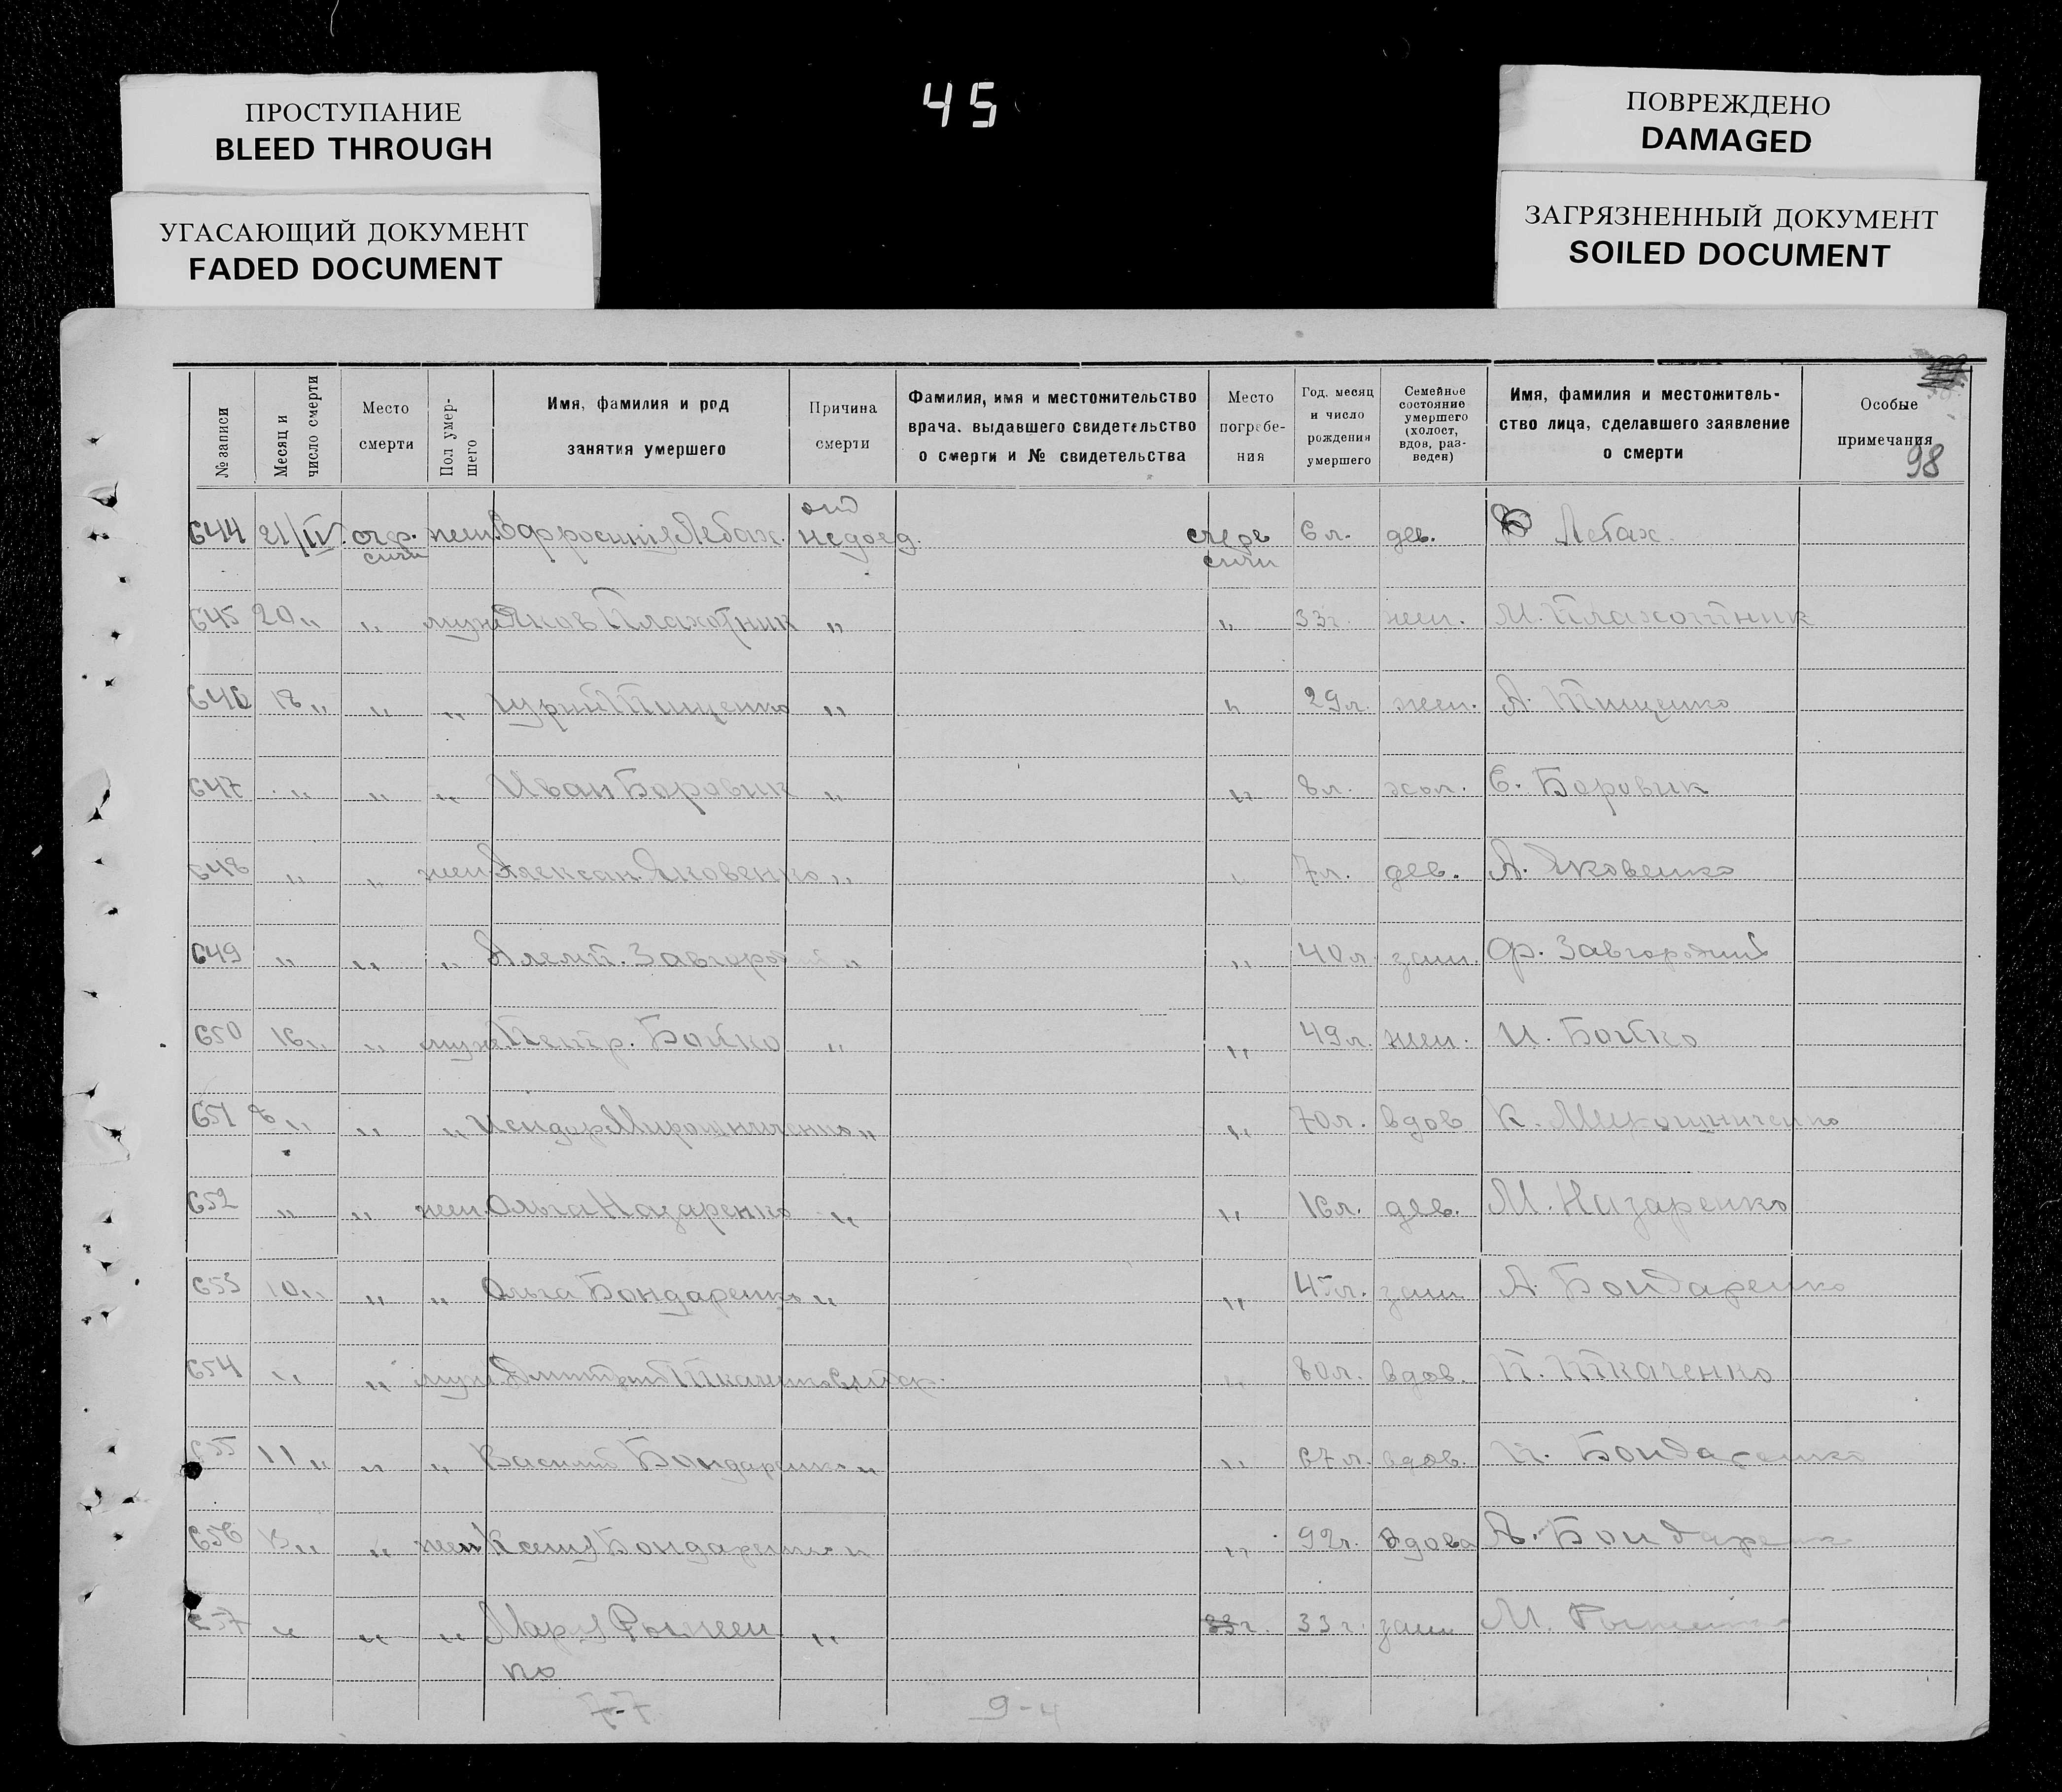 ПРОСТУПАНИЕ
BLEED THROUGH
УГАСАЮЩИЙ ДОКУМЕНТ
FADED DOCUMENT
45
ПОВРЕЖДЕНО
DAMAGED
ЗАГРЯЗНЕННЫЙ ДОКУМЕНТ
SOILED DOCUMENT
№ записи
Месяц и
число смерти
Место
смерти
Пол умер-
шего
Имя, фамилия и род
занятия умершего
Причина
смерти
Фамилия, имя и местожительство
врача, выдавшего свидетельство
о смерти и № свидетельства
Место
погребе-
ния
Год, месяц
и число
рождения
умершего
Семейное
состояние
умершего
(холост,
вдов, раз-
веден)
Имя, фамилия и местожитель-
ство лица, сделавшего заявление
о смерти
Особые
примечания
98
644 21/IV жен. Лебах недоед. 6 л. дев. Лебах
645 20 " " муж Яков Плахотник " " 33 г. жен. М. Плахотник
646 18 " " " Тищенко " " 29 л. жен. А. Тищенко
647 " " " Иван Боровик " " 8 л. хол. Е. Боровик
648 " " жен. Алексан. Яковенко " " 7 л. дев. А. Яковенко
649 " " " " " 40 л. зам. Ф. Завгородний
650 16 " " муж. Петр. Бойко " " 49 л. жен. И. Бойко
651 8 " " " Исидор Мирошниченко " " 70 л. вдов К. Мирошниченко
652 " " жен. Ольга Назаренко " " 16 л. дев. М. Назаренко
653 10 " " " Ольга Бондаренко " " 45 л. зам А. Бондаренко
654 " " муж Дмитрий " 80 л. вдов. П. Ткаченко
655 11 " " " Василий Бондаренко " " 67 л. вдов. Бондаренко
656 " " жен Ксения Бондаренко " " 92 г. вдова А. Бондаренко
657 " " " Мария " 33 г. 33 г. зам М.
ко
7-7
9-4